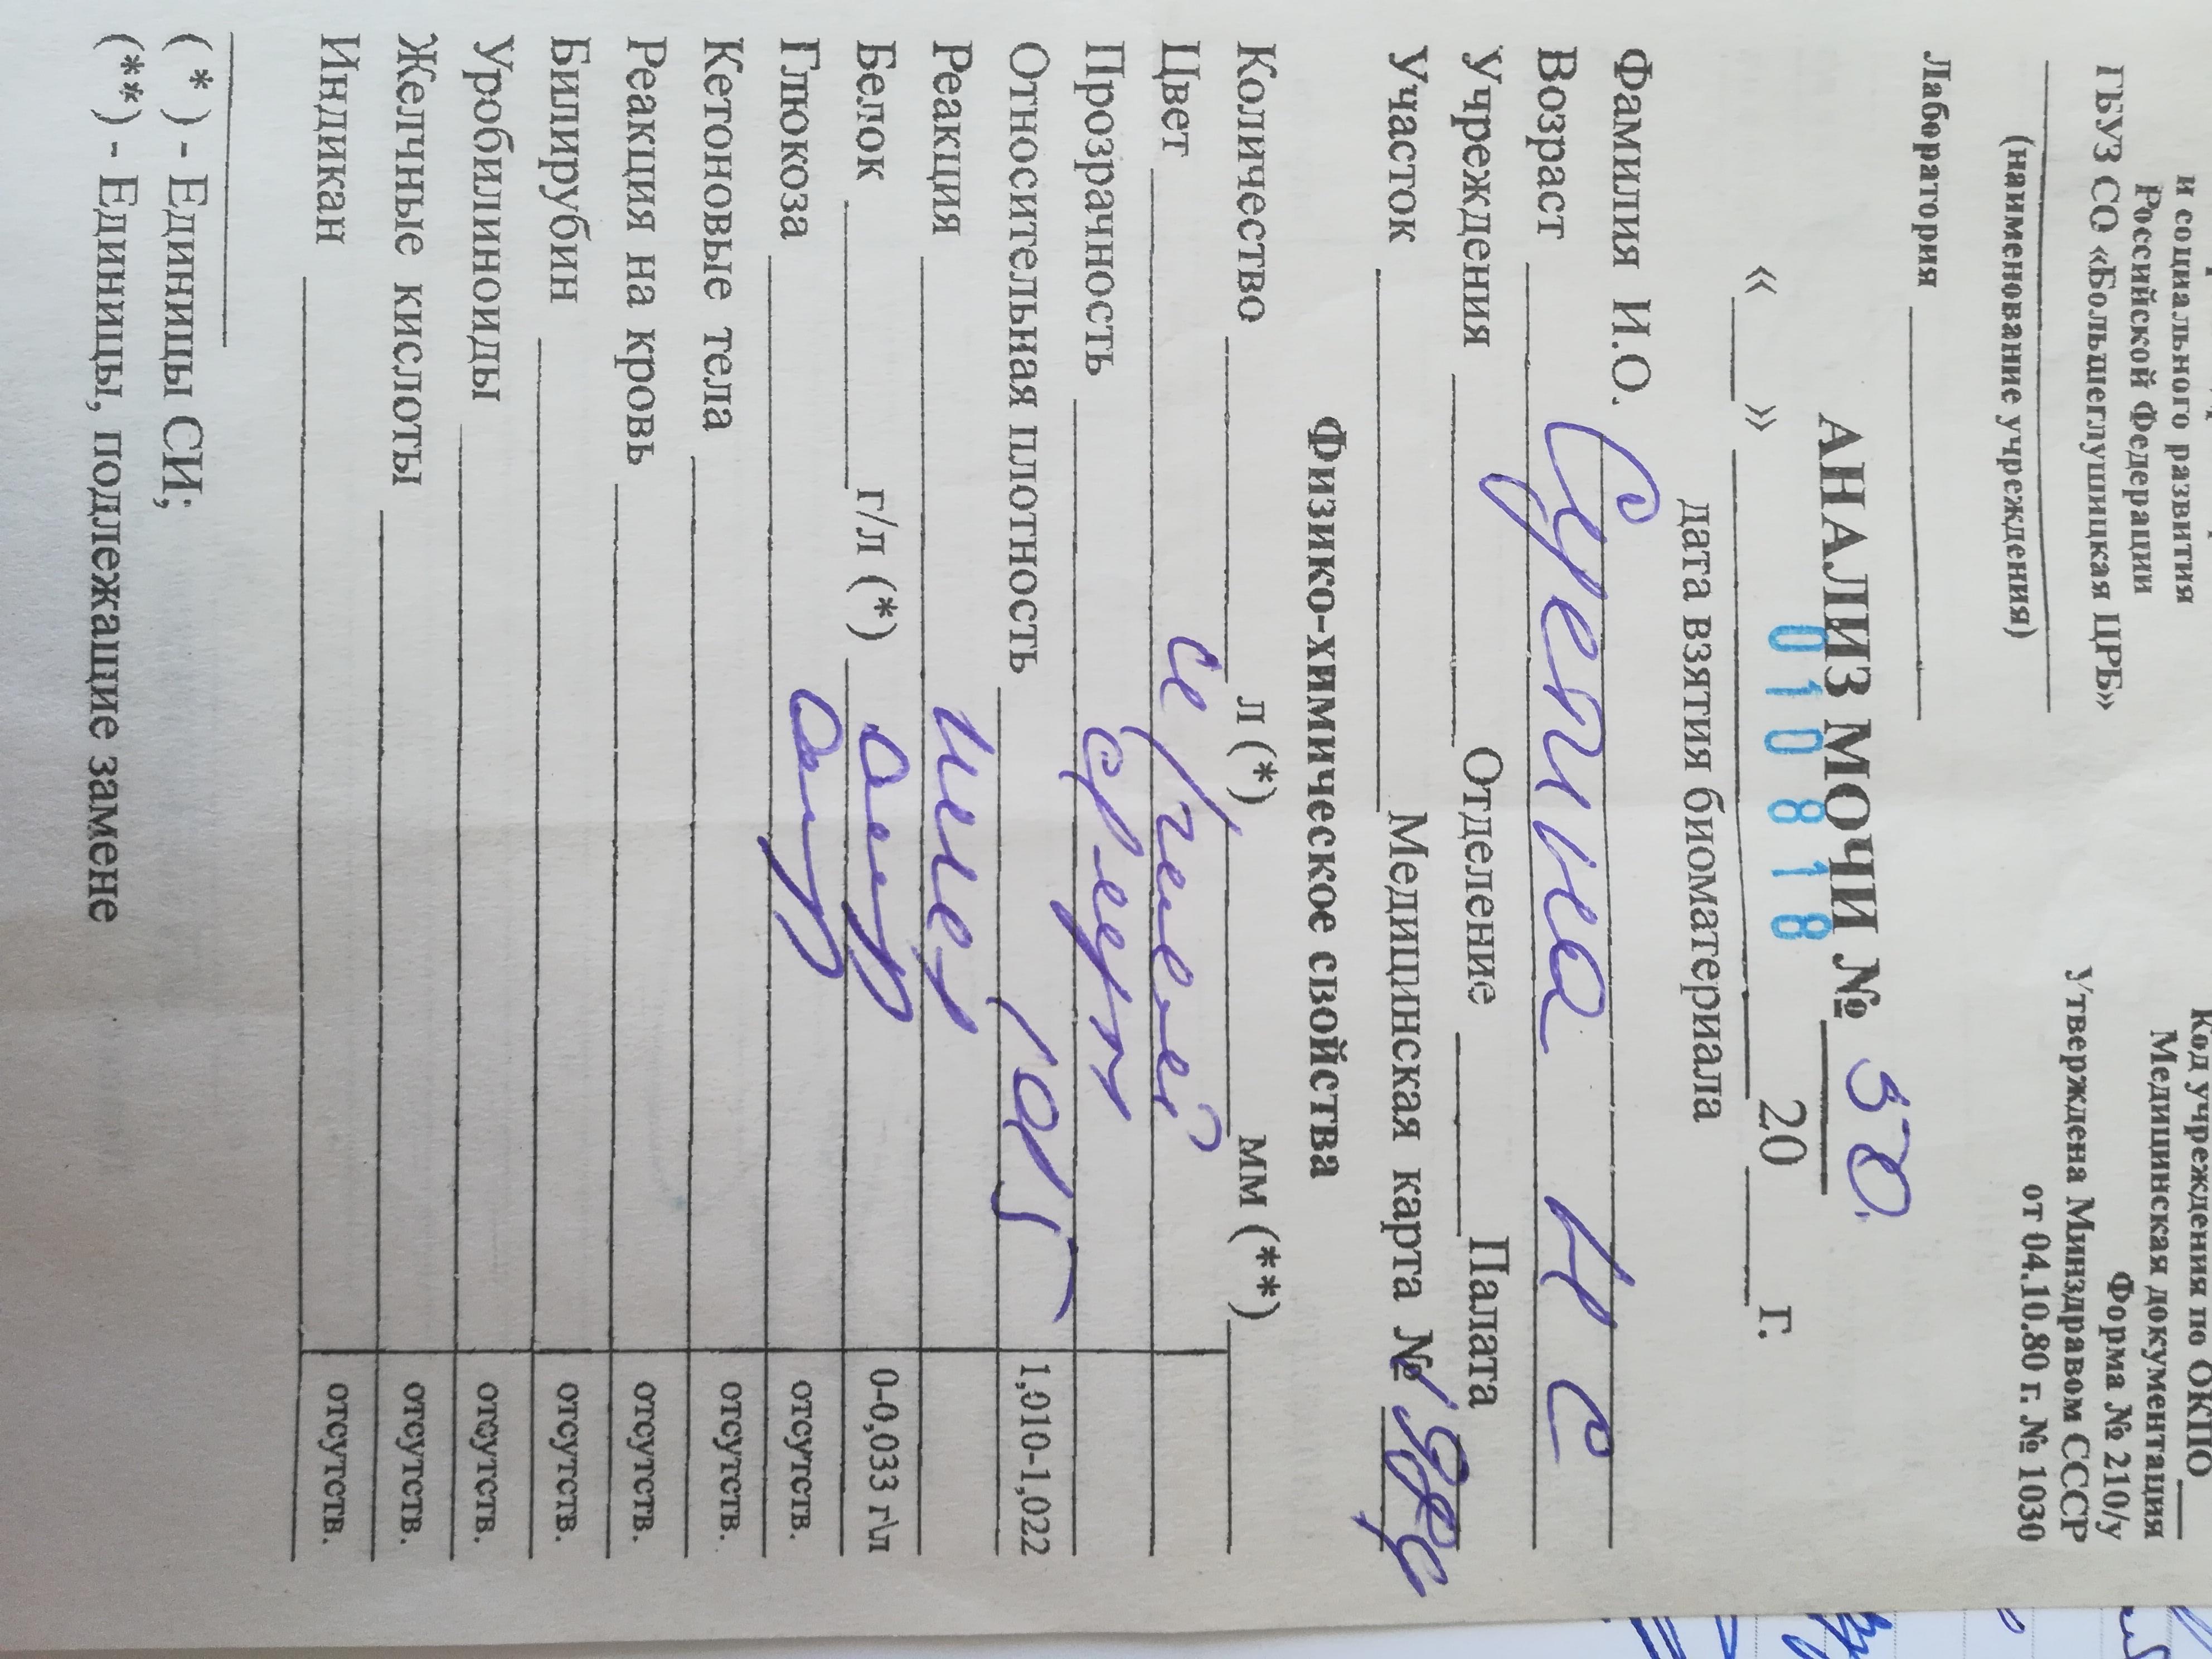 и социального развития
Российской Федерации
ГБУЗ СО «Большеглушицкая ЦРБ»
(наименование учреждения)
Лаборатория
Код учреждения по ОКПО
Медицинская документация
Форма № 210/у
Утверждена Минздравом СССР
от 04.10.80 г. № 1030
АНАЛИЗ МОЧИ № 50
010818
« » 20 г.
дата взятия биоматериала
Фамилия И.О. Сурепина Н С
Возраст
Учреждения Отделение Палата
Участок Медицинская карта №
Физико-химическое свойства
Количество л (*) мм (**)
Цвет
Прозрачность
Относительная плотность 1015 1,010-1,022
Реакция
Белок г/л (*) отр 0-0,033 г\л
Глюкоза отр отсутств.
Кетоновые тела отсутств.
Реакция на кровь отсутств.
Билирубин отсутств.
Уробилиноиды отсутств.
Желчные кислоты отсутств.
Индикан отсутств.
(*) - Единицы СИ;
(**) - Единицы, подлежащие замене